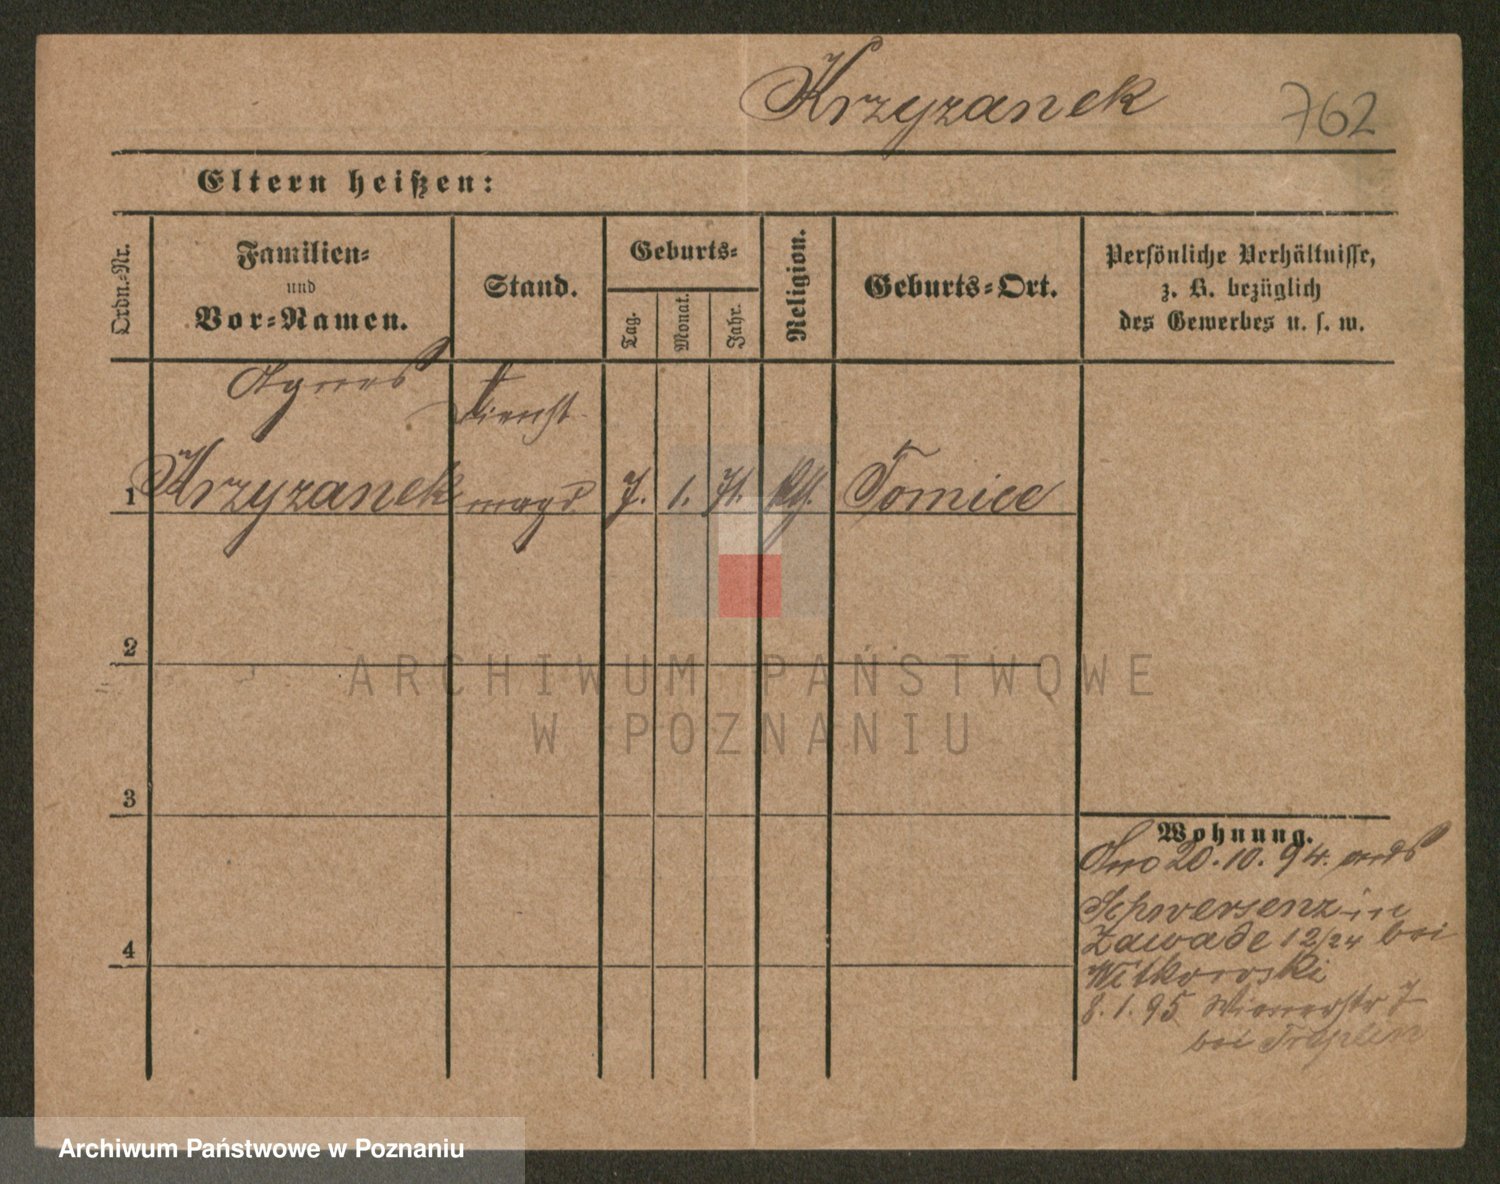 Krzyzanek 762
Eltern heißen:
Ordn.-Nr.
Familien-
und
Vor-Namen.
Stand.
Geburts-
Tag.
Monat.
Jahr.
Religion.
Geburts-Ort.
Persönliche Verhältnisse,
z. B. bezüglich
des Gewerbes u. s. w.
Agnes Dienst
1 Krzyzanek magd 7. 1. 71. kth. Tomice
2
3
4
Wohnung.
20. 10. 94. aus
Schwersenz in
Zawade 12/24 bei
Witkowski
8. 1. 95 Wienerstr 7
bei
ARCHIWUM PAŃSTWOWE
W POZNANIU
Archiwum Państwowe w Poznaniu